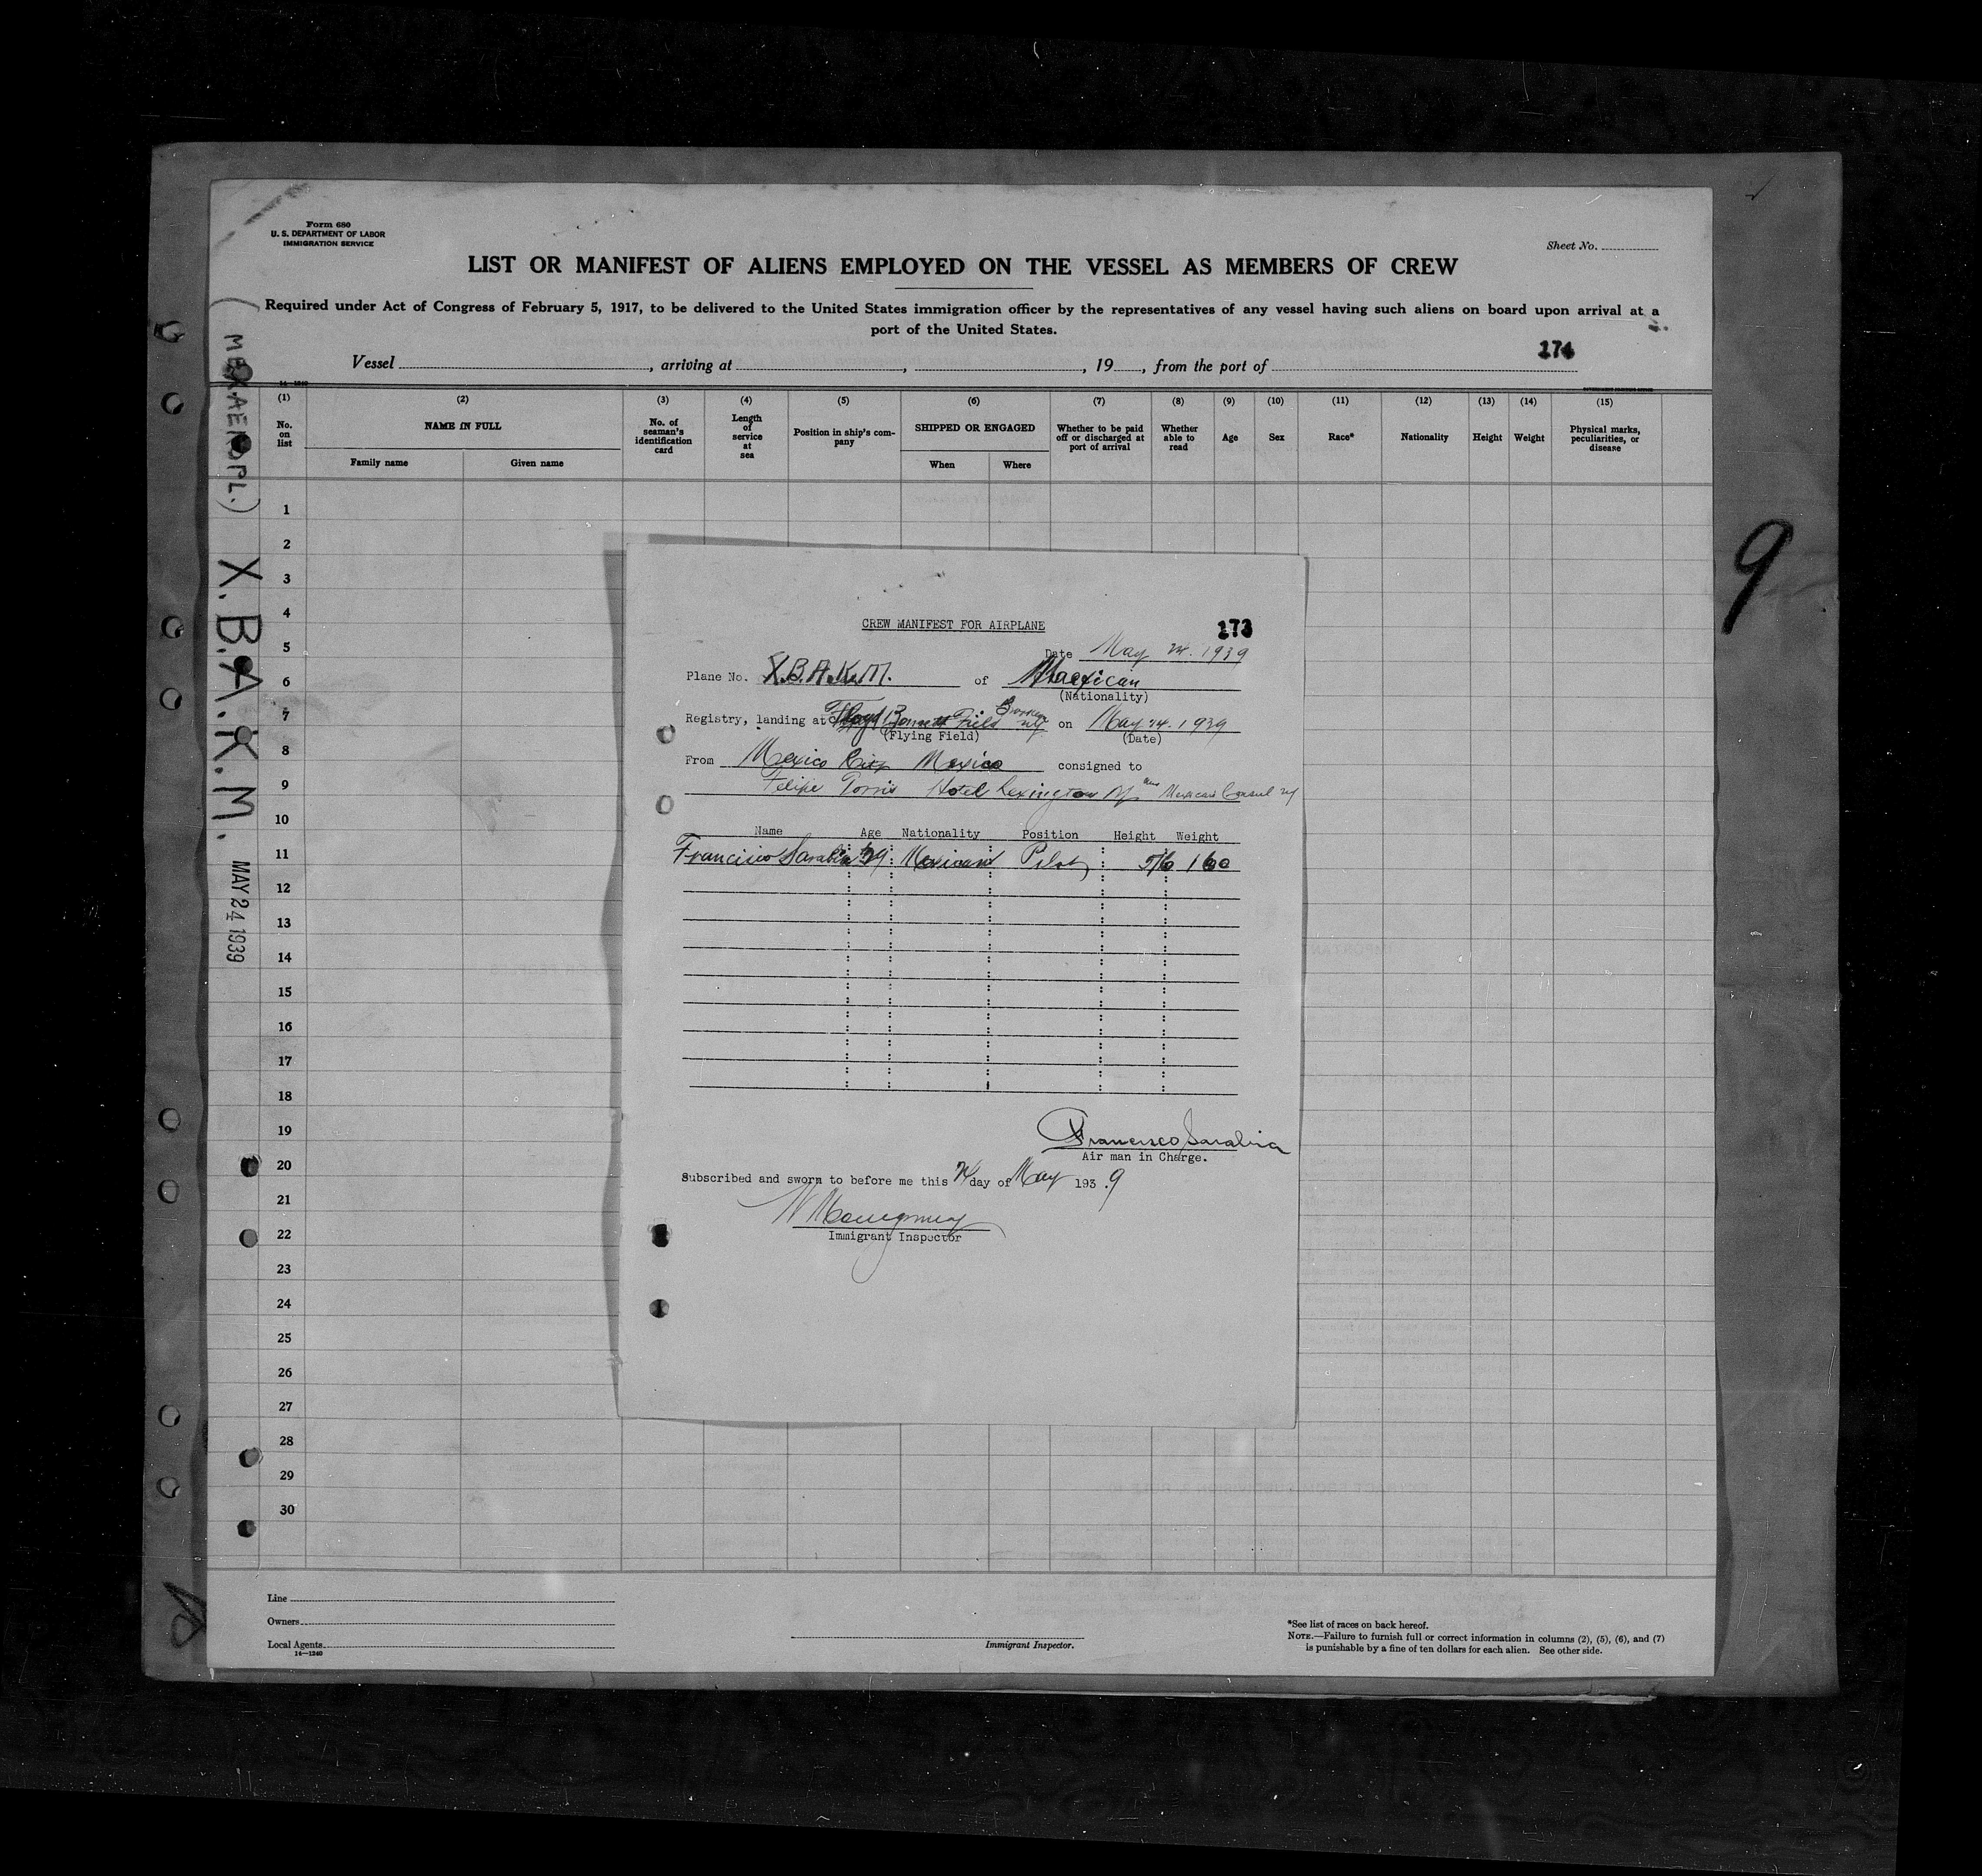 Form 680
U. S. DEPARTMENT OF LABOR
IMMIGRATION SERVICE
Sheet No.
LIST OR MANIFEST OF ALIENS EMPLOYED ON THE VESSEL AS MEMBERS OF CREW
Required under Act of Congress of February 5, 1917, to be delivered to the United States immigration officer by the representatives of any vessel having such aliens on board upon arrival at a
port of the United States.
174
Vessel , arriving at , , 19 , from the port of
14—1240
(1) (2) (3) (4) (5) (6) (7) (8) (9) (10) (11) (12) (13) (14) (15)
No. on list
NAME IN FULL
Family name Given name
No. of seaman's identification card
Length of service at sea
Position in ship's company
SHIPPED OR ENGAGED
When Where
Whether to be paid off or discharged at port of arrival
Whether able to read
Age
Sex
Race*
Nationality
Height
Weight
Physical marks, peculiarities, or disease
1
2
3
4
5
6
7
8
9
10
11
12
13
14
15
16
17
18
19
20
21
22
23
24
25
26
27
28
29
30
(MEX. AEROPL.) X.B.A.K.M. MAY 24 1939
9
CREW MANIFEST FOR AIRPLANE
173
Date May 24. 1939
Plane No. X.B.A.K.M. of Mexican
(Nationality)
Registry, landing at Floyd Bennett Field Brooklyn NY on May 24. 1939
(Flying Field) (Date)
From Mexico City Mexico consigned to
Felipe Torris Hotel Lexington NY Mexican Consul NY
Name Age Nationality Position Height Weight
Francisco Sarabia 39 Mexican Pilot 5/6 160
Francisco Sarabia
Air man in Charge.
Subscribed and sworn to before me this 24 day of May 1939
Immigrant Inspector
Line
Owners
Local Agents
14—1240
Immigrant Inspector.
*See list of races on back hereof.
NOTE.—Failure to furnish full or correct information in columns (2), (5), (6), and (7)
is punishable by a fine of ten dollars for each alien. See other side.